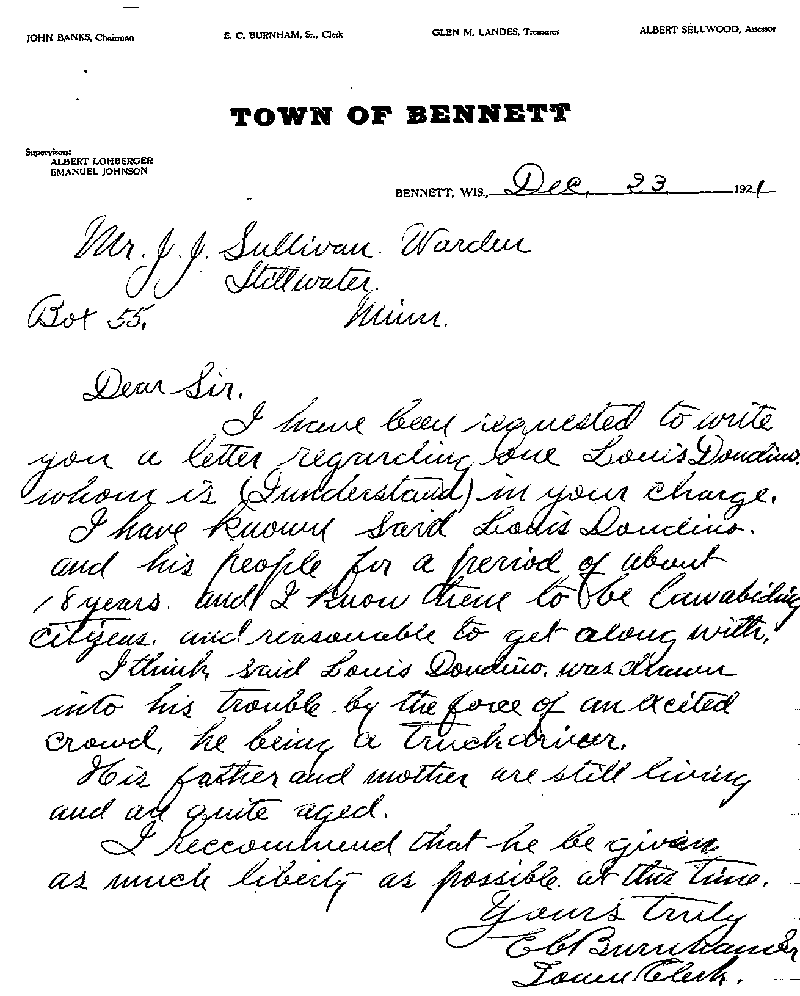 JOHN BANKS, Chairman E. C. BURNHAM, Sr., Clerk GLEN M. LANDES, Treasurer ALBERT SELLWOOD, Assessor
TOWN OF BENNETT
Supervisors:
ALBERT LOHBERGER
EMANUEL JOHNSON
BENNETT, WIS., Dec. 23 1921
Mr. J. J. Sullivan. Warden
Stillwater.
Box 55. Minn.
Dear Sir.
I have been requested to write
you a letter regarding one Louis Dondino.
whom is (I understand) in your charge.
I have known said Louis Dondino.
and his people for a period of about
18 years. and I know them to be lawabiding
citizens. and reasonable to get along with.
I think said Louis Dondino. was drawn
into his trouble by the force of an excited
crowd, he being a truck driver.
His father and mother are still living
and are quite aged.
I reccommend that he be given
as much liberty as possible at this time.
Yours truly
E C Burnham Sr
Town Clerk.